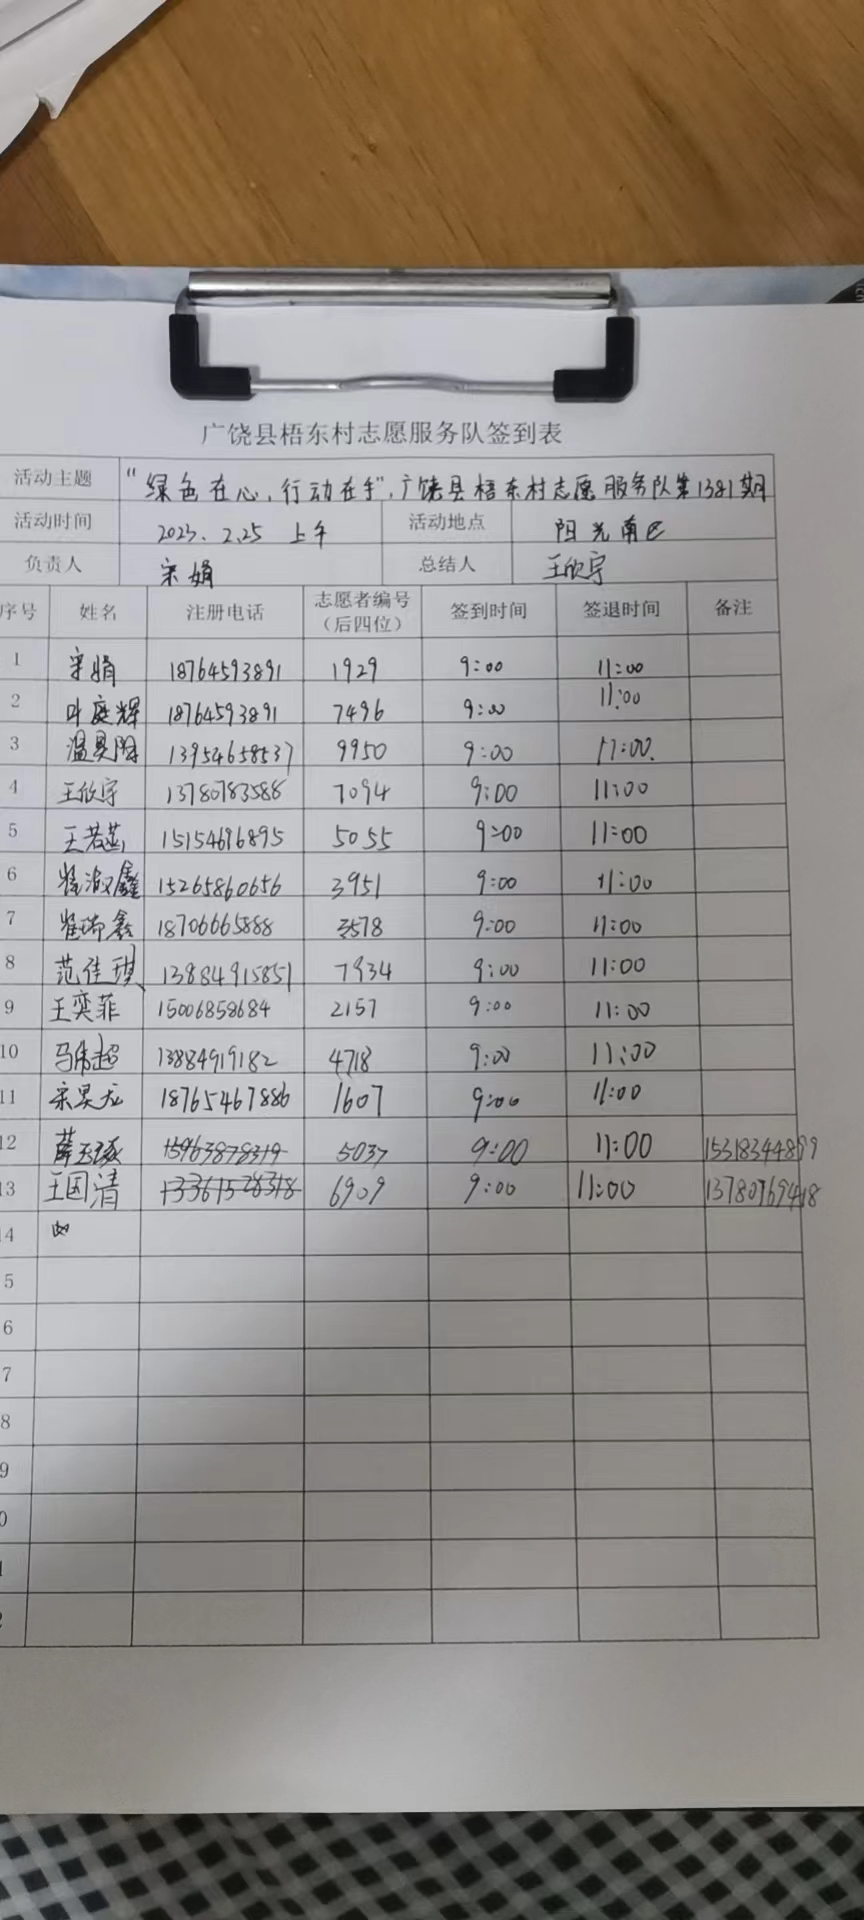 广饶县梧东村志愿服务队签到表
活动主题 “绿色在心,行动在手”,广饶县梧东村志愿服务队第1381期
活动时间 2023.2.25 上午 活动地点 阳光南区
负责人 宋娟 总结人 王欣宇
序号 姓名 注册电话 志愿者编号(后四位) 签到时间 签退时间 备注
1 宋娟 18764593891 1929 9:00 11:00
2 叶庭辉 18764593891 7496 9:00 11:00
3 温昊阳 13954658537 9950 9:00 11:00.
4 王欣宇 13780783588 7094 9:00 11:00
5 王若菡 15154696895 5055 9:00 11:00
6 淑鑫 15265860656 3951 9:00 11:00
7 崔瑞鑫 18706665888 3578 9:00 11:00
8 范佳琪 13884915851 7934 9:00 11:00
9 王奕菲 15006858684 2157 9:00 11:00
10 马伟超 13884919182 4718 9:00 11:00
11 宋昊龙 18765467886 1607 9:00 11:00
12 薛玉琢 15963878319 5037 9:00 11:00 15318344899
13 王国清 13361528318 6909 9:00 11:00 13780769418
14
5
6
7
8
9
0
1
2